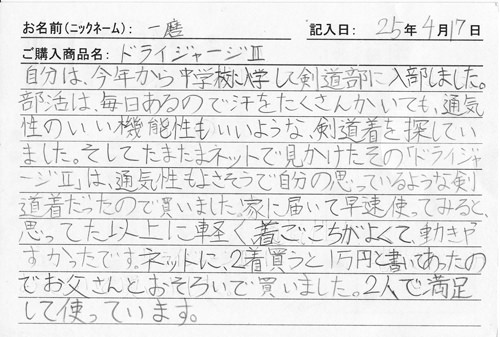 お名前(ニックネーム): 一磨 記入日: 25年4月17日
ご購入商品名: ドライジャージⅡ
自分は、今年から中学校に入学して剣道部に入部しました。
部活は、毎日あるので汗をたくさんかいても、通気
性のいい機能性もいいような、剣道着を探してい
ました。そしてたまたまネットで見かけたその「ドライジャ
ージⅡ」は、通気性もよさそうで自分の思っているような剣
道着だったので買いました。家に届いて早速使ってみると、
思ってた以上に軽く着ごこちがよくて、動きや
すかったです。ネットに、2着買うと1万円と書いてあったの
でお父さんとおそろいで買いました。2人で満足
して使っています。